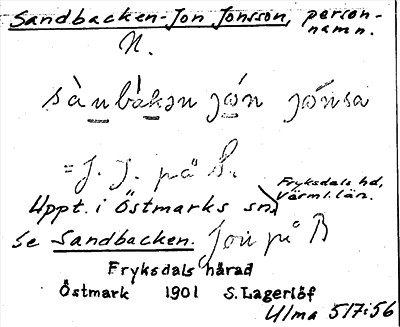 Sandbacken-Jon Jonsson, person-
namn.
N.
sànbàkən jón jónsa
= J. J. på S.
Uppt. i Östmarks sn, Fryksdals hd,
Värml. län.
Se Sandbacken. Jon på B
Fryksdals härad
Östmark 1901 S. Lagerlöf
Ulma 517:56